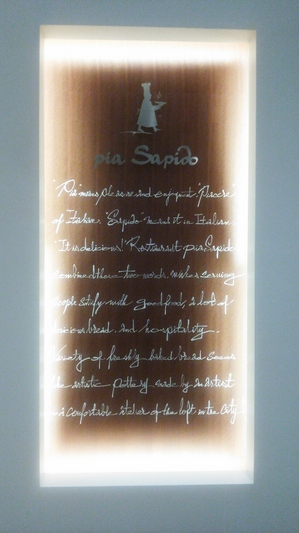 pia Sapido
"Pia" means pleasure and enjoyment "Piacere"
of Italian. "Sapido" meant it in Italian
"It is delicious!" Restaurant pia Sapido
combined these two words, makes serving
people satisfy with good food, a lot of
delicious bread and hospitality.
Variety of freshly baked bread
the artistic pottery made by an artist
in a comfortable atelier of the loft in the City